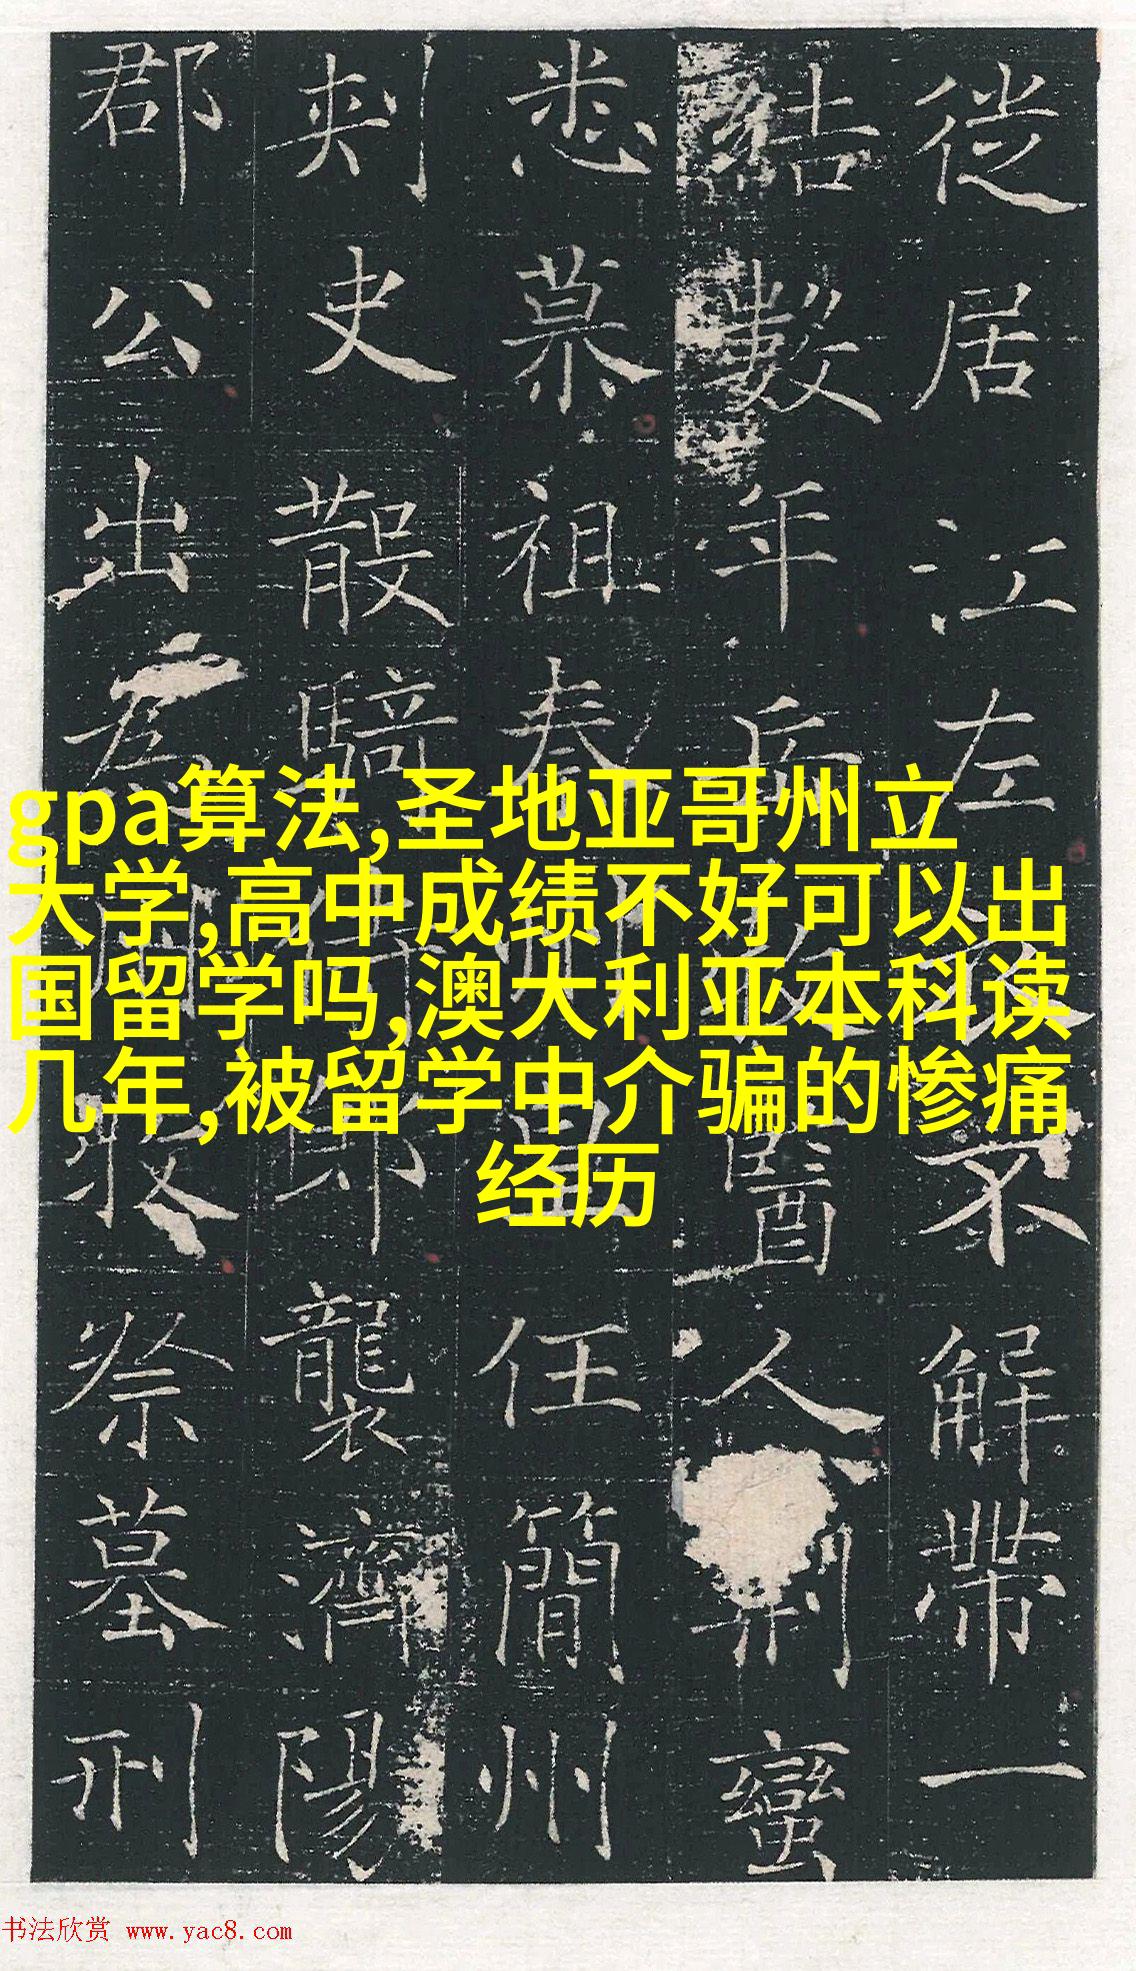 徙居江左不解帶一
結數年醫人制蠻
悉慕祖春任簡州
刺史散騎侍郎襲濟陽
郡公出為祭墓刑
gpa算法,圣地亚哥州立
大学,高中成绩不好可以出
国留学吗,澳大利亚本科读
几年,被留学中介骗的惨痛
经历
书法欣赏 www.yac8.com